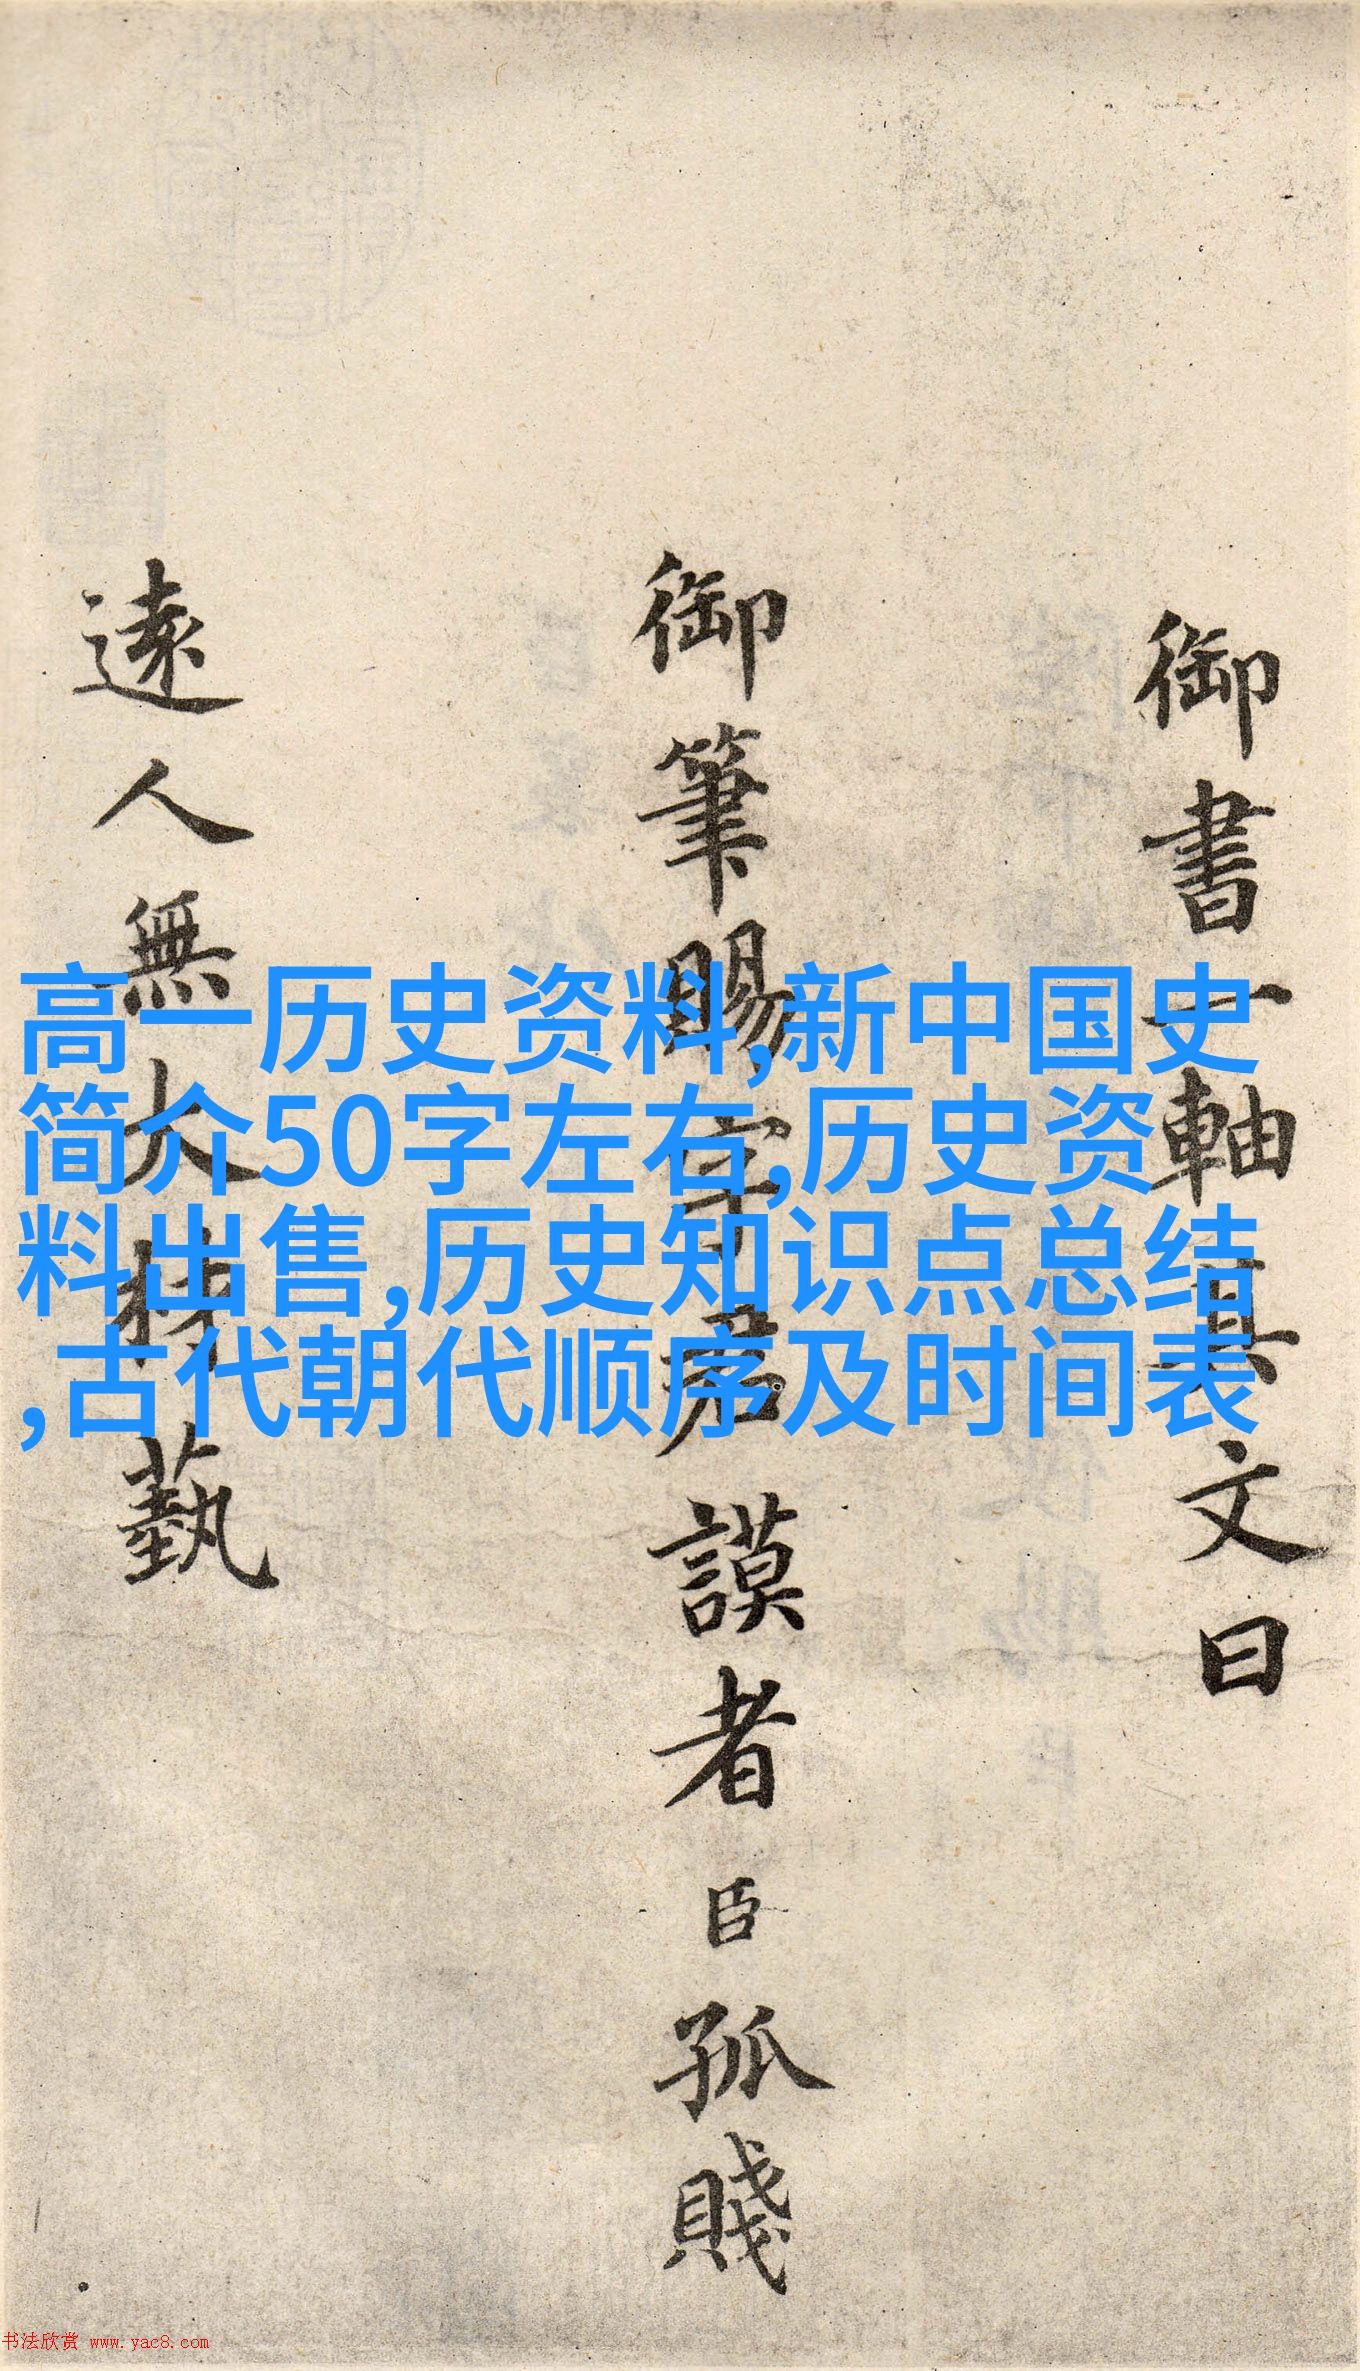 御書一軸其文曰
御筆賜字君謨者臣孤賤
遠人無大材藝
高一历史资料,新中国史
简介50字左右,历史资
料出售,历史知识点总结
,古代朝代顺序及时间表
书法欣赏 www.yac8.com